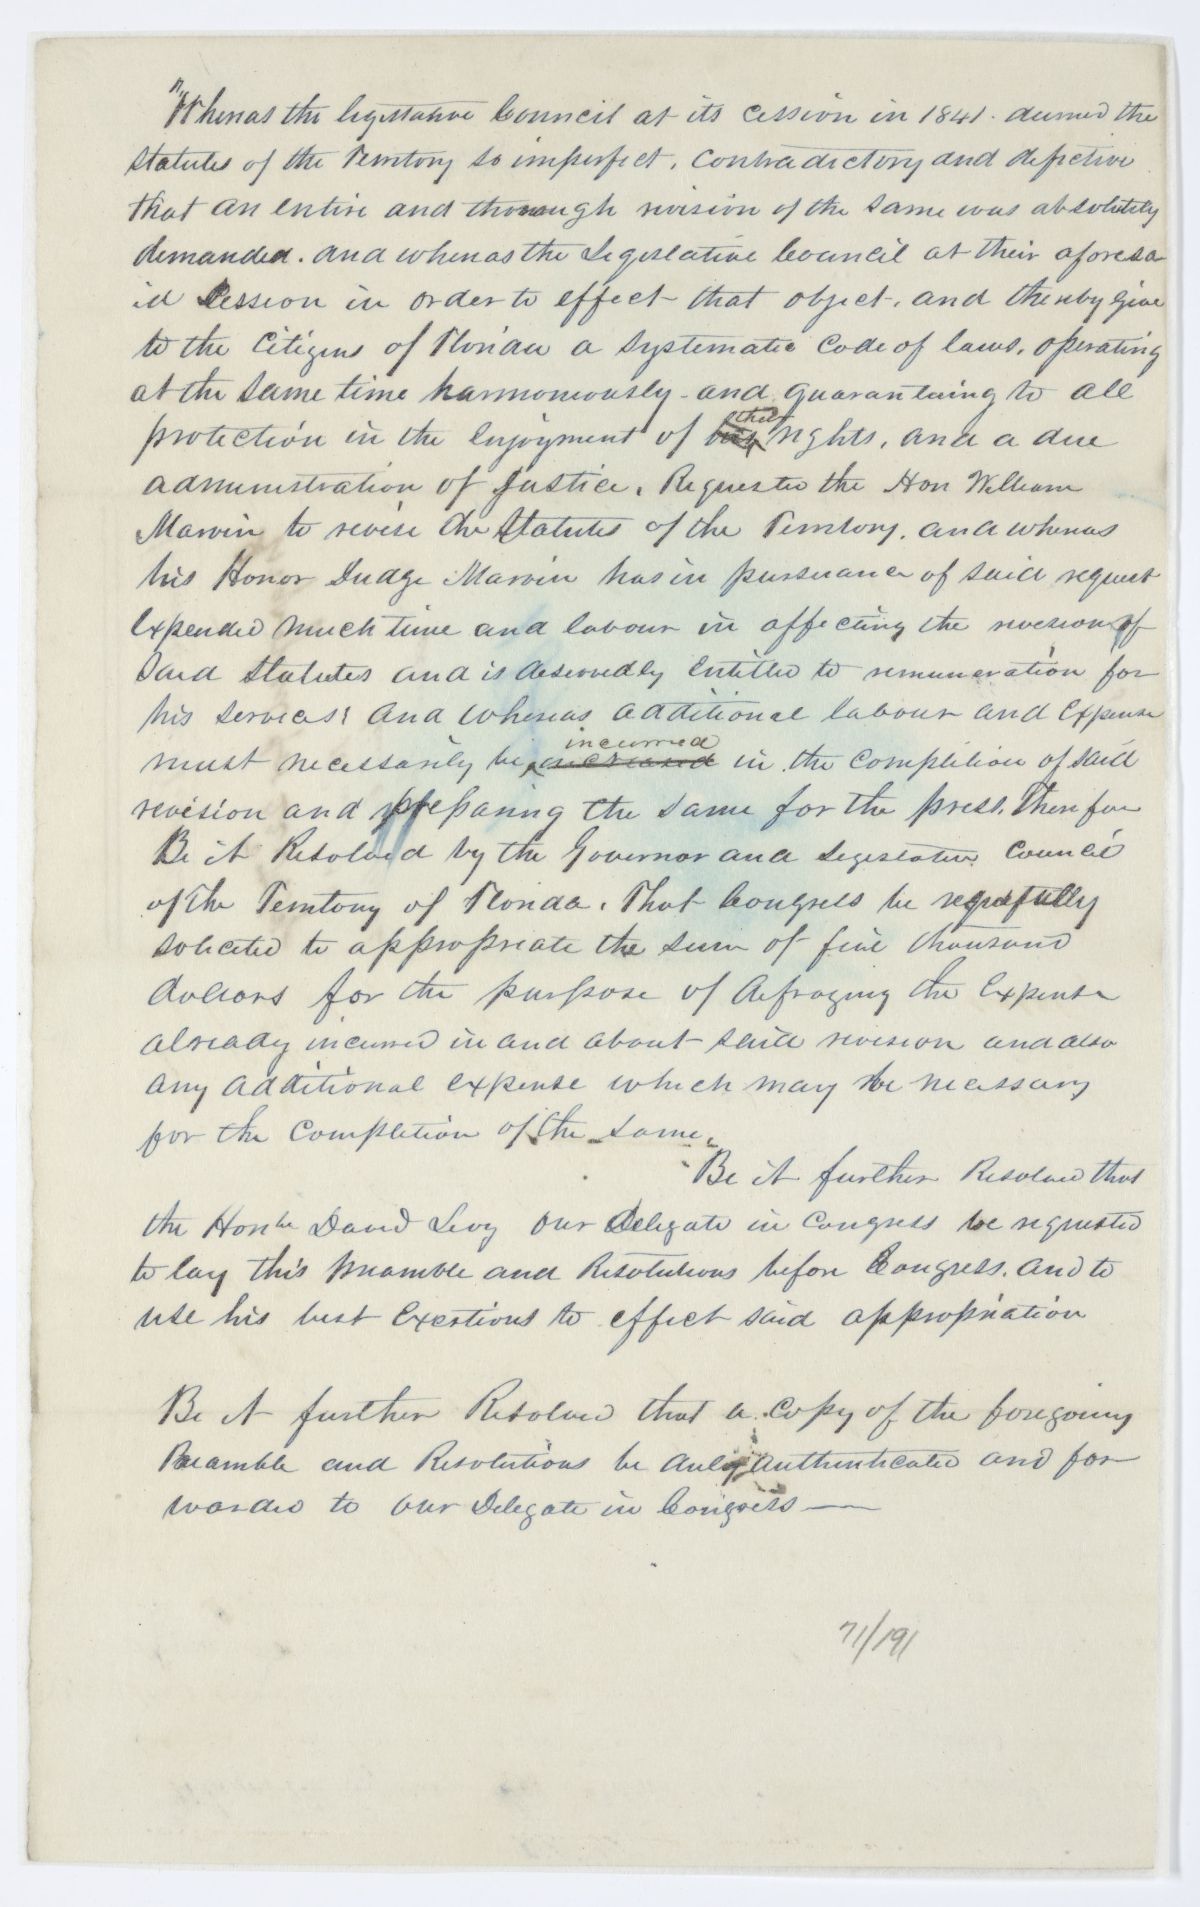 "Whereas the legislative Council at its cession in 1841. deemed the
statutes of the Territory so imperfect, contradictory and defective
that an entire and thorough revision of the same was absolutely
demanded. and whereas the Legislative Council at their aforesa
id Session in order to effect that object, and thereby give
to the Citizens of Florida a systematic Code of laws, operating
at the same time harmoniously and guaranteeing to all
protection in the enjoyment of their rights, and a due
administration of Justice, Requested the Hon William
Marvin to revise the Statutes of the Territory, and whereas
his Honor Judge Marvin has in pursuance of said request
expended much time and labour in affecting the revision of
said Statutes and is deservedly entitled to remuneration for
his services; And whereas additional labour and expense
must necessarily be incurred in the completion of said
revision and preparing the same for the press. Therefore
Be it Resolved by the Governor and Legislative Council
of the Territory of Florida, That Congress be respectfully
solicited to appropriate the sum of five thousand
dollars for the purpose of defraying the expense
already incurred in and about said revision and also
any additional expense which may be necessary
for the completion of the same.
Be it further Resolved that
the Honble David Levy our Delegate in Congress be requested
to lay this preamble and Resolutions before Congress, and to
use his best exertions to effect said appropriation
Be it further Resolved that a copy of the foregoing
Preamble and Resolutions be duly authenticated and for
warded to our Delegate in Congress
71/191